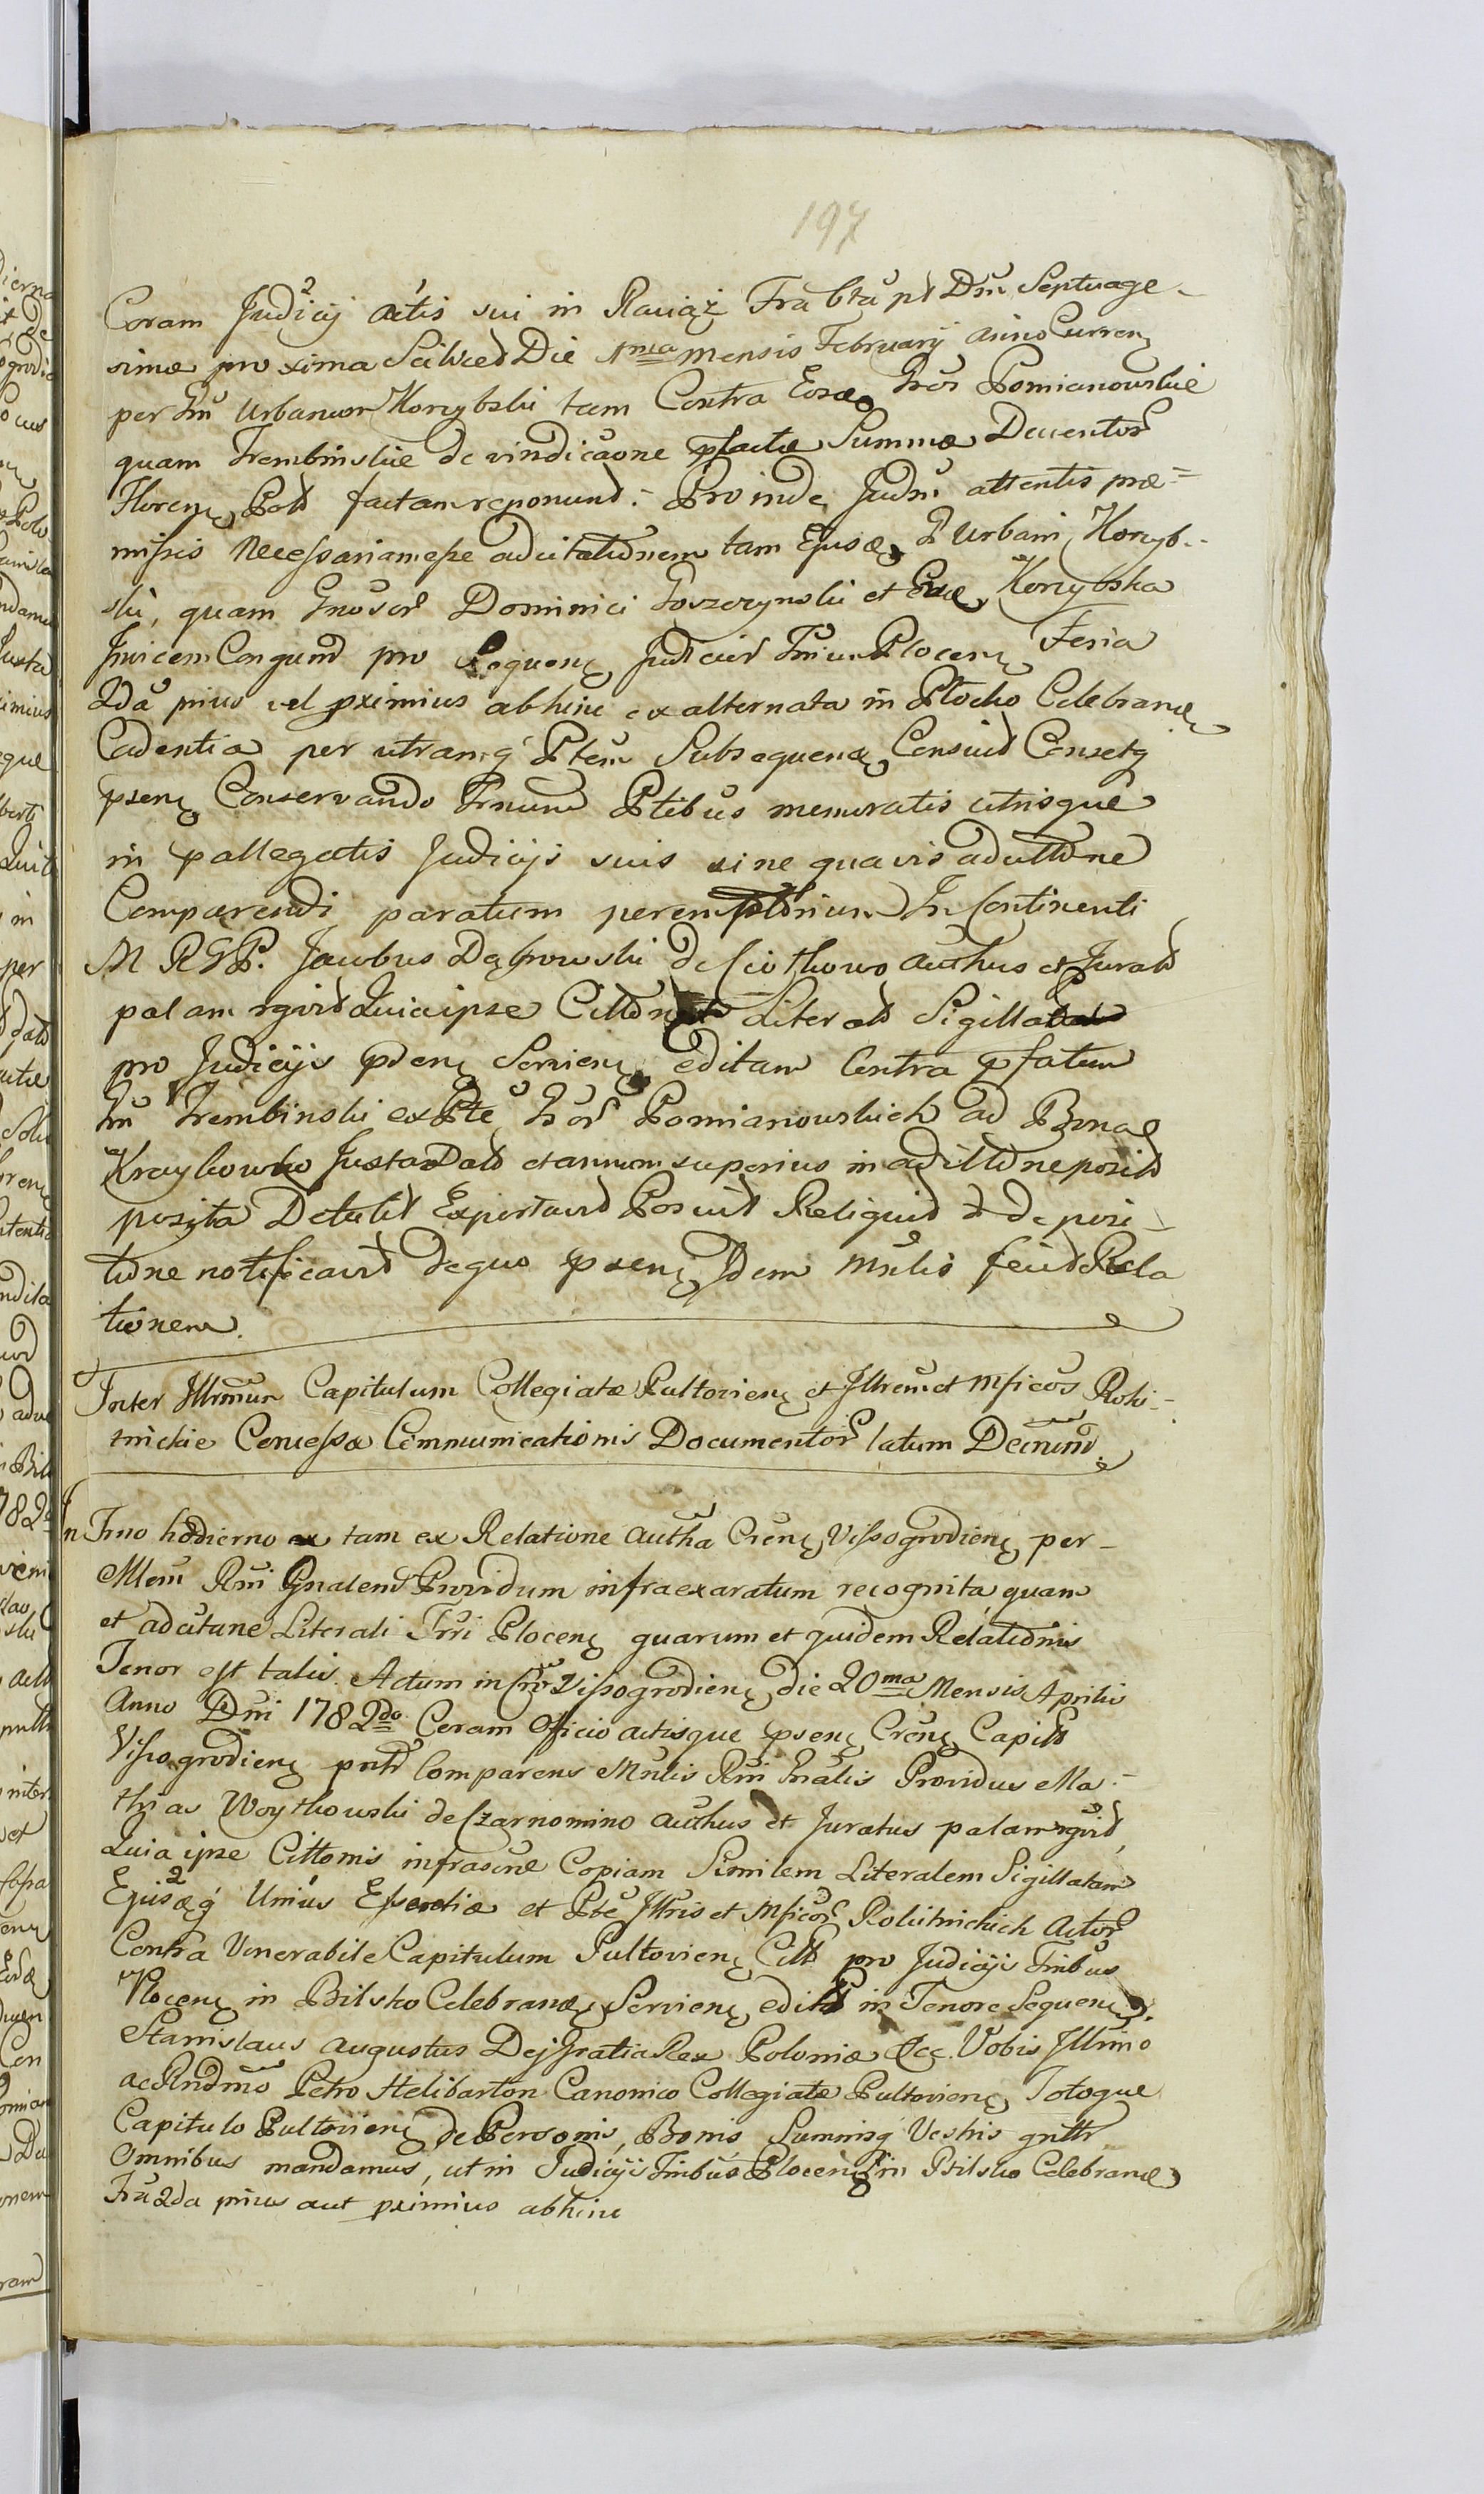 197
Coram Judicij actis sui in Raciąż Fra 6ta pt Dni Septuage-
sima proxima Scilicet Die 1ma mensis February anno Curren
per Gm Urbanum Korzybski tam Contra Eosd Gros Pomianowskie
quam Trembinskie de vindicaone pfactae Summae Ducentor
Floren Pold factam reponend: Proinde Judm attentis prae=
missis Necessariam esse adcitationem tam Ejusd G Urbani Korzyb-
ski, quam Gnosor Dominici Goszczynski et Evae Korzybska
Invicem Congund pro Sequen Judicid Trium Plocen Feria
2da prius vel pximius abhinc ex alternata in Płocko Celebrand
Cadentia per utramq Ptem Subsequend Censuid Censetq
psens Conservando Trnum Ptibus memoratis utrisque
in pallegatis Judicijs suis sine quavis adcittone
Comparendi paratum peremptorium In Continenti
M RGP. Jacobus Dąbrowski de Ciothowo Authus et Jurat
palam rgvit Quia ipse Cittonem Literat Sigillat
pro Judicijs pden Servien editam Contra pfatum
Gm Trembinski ex Pte Gror Pomianowskich ad Bona
Kraykowko Juxta Dat et annum superius in adcittone posit
posita Detulit Exportavit Posuit Reliquid & de posi-
tione notificavit de quo psens Idem Mnlis fecit Rela
tionem.
Inter Illrmum Capitulum Collegiatae Pultovien et Illrem et Mficos Roki-
tnickie Concessae Communicationis Documentor latum Decrum.
In Trno hodierno ex tam ex Relatione autha Cren Vissogrodien per-
Mlem Rni Gnalem Providum infraexaratum recognita, quam
et adcitane Literali Trri Plocen quarum et quidem Relationis
Tenor est talis. Actum in Cro Vissogrodien die 20ma Mensis Aprilis
Anno Dni 1782do. Coram Officio actisque psen Cren Capit
Vissogrodien pntr Comparens Mnlis Rni Gnalis Providus Ma-
thias Woytkowski de Czarnomino authus et Juratus palam rgvit,
Quia ipse Cittonis infrascrae Copiam Similem Literalem Sigillatam
Ejusdq Unius Essentiae et Pte Illris et Mficor Rokitnickich Actor
Contra Venerabile Capitulum Pultovien Citt pro Judicijs Tribus
Plocen in Bilsko Celebrand Servien edit in Tenore Sequen.
Stanislaus Augustus Dej Gratia Rex Poloniae &c. Vobis Illrmo
ac Rndmo Petro Helibarton Canonico Collegiatae Pultovien, Totoque
Capitulo Pultovien de Personis, Bonis Summisq Vestris gnltr
Omnibus mandamus, ut in Judicijs Tribus Plocen in Bilsko Celebrand
Fra 2da prius aut pximius abhinc